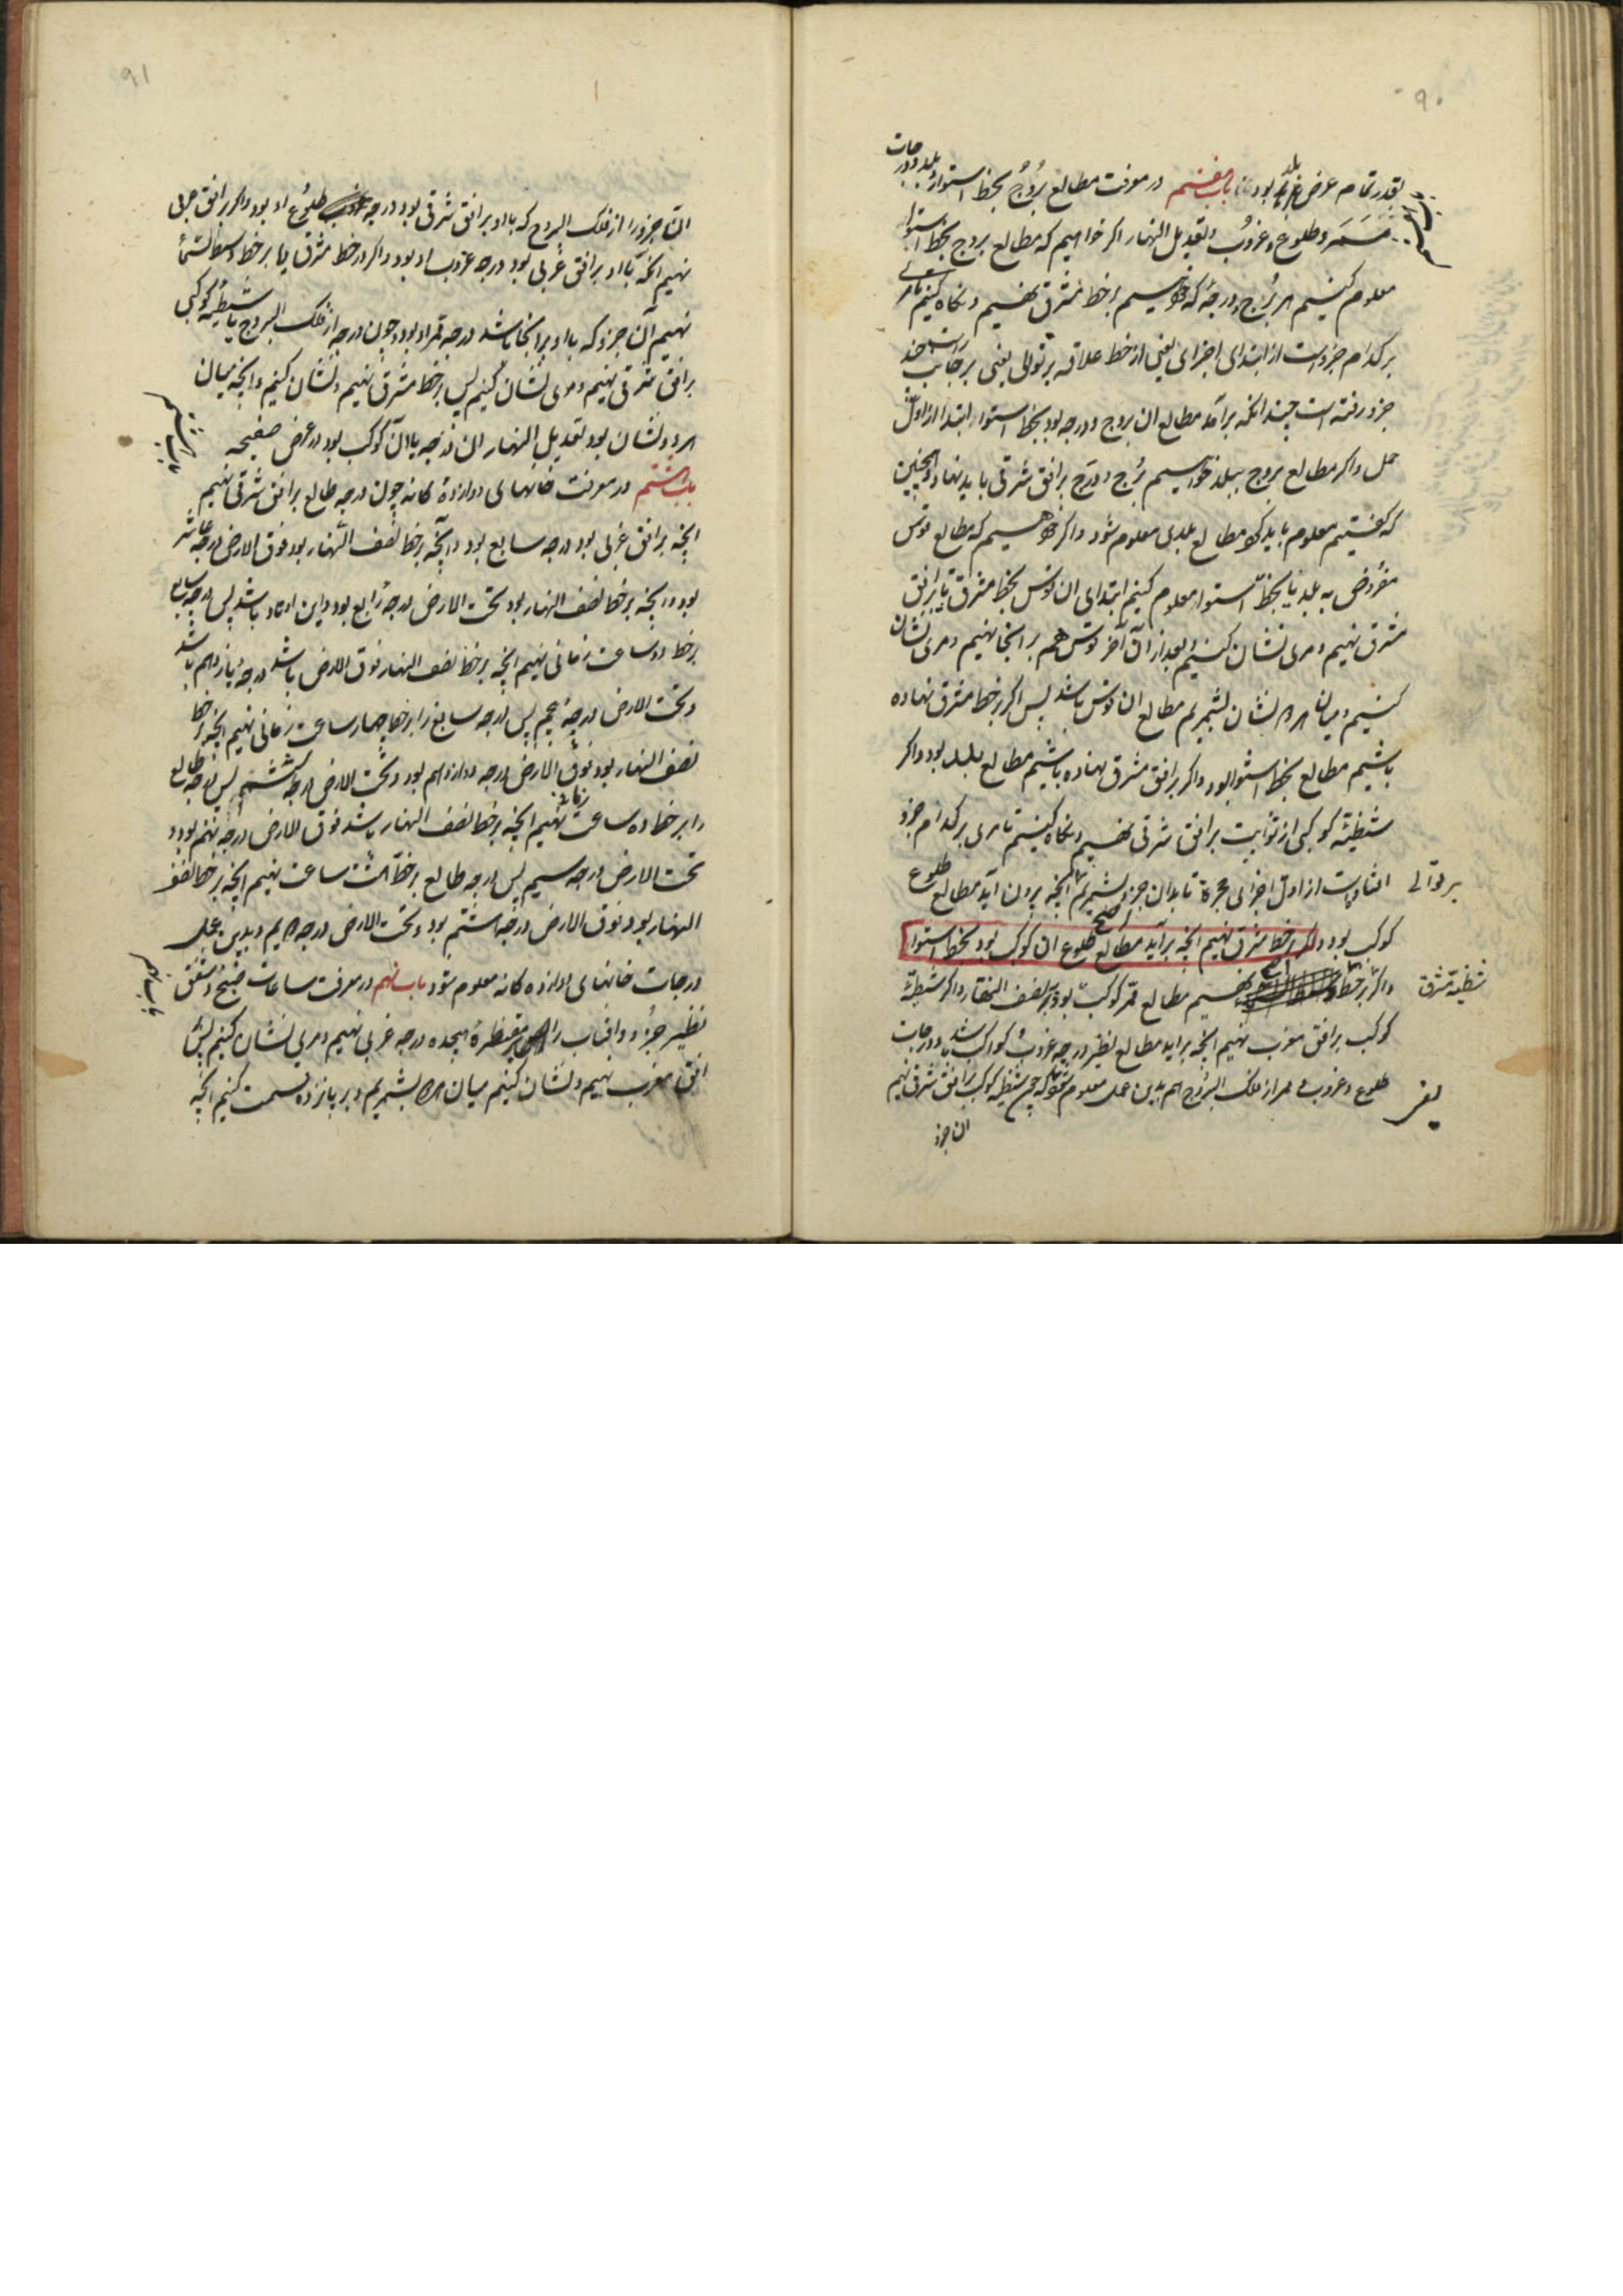 ۹۰
بقدر تمام عرض بلد بود باب هفتم در معرفت مطالع بروج بخط استوا و بلد و درجات
ممر و طلوع و غروب و تعدیل النهار اکر خواهیم که مطالع بروج بخط استوا
معلوم کنیم هر برج و درجه که خواهیم بر خط مشرق نهیم و نکاه کنیم تا مری
بر کدام جزوست از ابتدای اجزای یعنی از خط علاقه بر توالی یعنی بر جانب راست چند
جزو رفته است چندانکه برآمد مطالع ان بروج و درجه بود بخط استوا ابتدا از اول
حمل و اکر مطالع بروج ببلد خواهیم برج و درج بر افق شرقی باید نهاد و همچنین
که کفتیم معلوم باید کرد مطالع بلدی معلوم شود و اکر خواهیم که مطالع قوس
مفروض به بلد یا بخط استوا معلوم کنیم ابتدای ان قوس بخط مشرق یا بر افق
مشرق نهیم و مری نشان کنیم و بعد از ان آخر قوس هم بر انجا نهیم و مری نشان
کنیم و میان هر دو نشان بشمریم مطالع ان قوس باشد پس اکر بر خط مشرق نهاده
باشیم مطالع بخط استوا بود و اکر بر افق مشرق نهاده باشیم مطالع ببلد بود و اکر
شظیهٔ کوکبی از ثوابت بر افق شرقی نهیم و نکاه کنیم تا مری بر کدام جزو
افتاده است از اول اجزای حجره تا بدان جزو بشمریم انچه برون اید مطالع طلوع
بر توالی
کوکب بود و اکر بر خط مشرق نهیم انچه برآید مطالع طلوع ان کوکب بود بخط استوا
و اکر بر خط نهیم مطالع ممر کوکب بود بر نصف النهار و اکر شظیهٔ
شظیهٔ مشرق
کوکب بر افق مغرب نهیم انچه براید مطالع نظیر درجه غروب کواکب باشد و درجات
طلوع و غروب و ممر از فلک البروج هم بدین عمل معلوم شود که چون شظیه کوکب بر افق شرقی نهیم
ان جزو
۹۱
ان جزو را از فلک البروج که با او بر افق شرقی بود درجه طلوع او بود و اکر بر افق غربی
نهیم انکه با او بر افق غربی بود درجه غروب او بود و اکر در خط مشرق یا بر خط وسط السما
نهیم آن جزو که با او بر انجا باشد درجه ممر او بود و چون درجه از فلک البروج یا شظیه کوکبی
بر افق شرقی نهیم و مری نشان کنیم پس بر خط مشرق نهیم و نشان کنیم و انچه میان
هر دو نشان بود تعدیل النهار ان درجه یا ان کوکب بود در عرض صفیحه
باب هشتم در معرفت خانهای دوازده کانه چون درجه طالع بر افق شرقی نهیم
انچه بر افق غربی بود درجه سابع بود و انچه بر خط نصف النهار بود فوق الارض درجه عاشر
بود و انچه بر خط نصف النهار بود تحت الارض درجه رابع بود و این اوتاد باشد پس درجه سابع
بر خط دو ساعت زمانی نهیم انچه بر خط نصف النهار فوق الارض باشد درجه یازدهم باشد
و تحت الارض درجه پنجم پس درجه سابع را بر خط چهار ساعت زمانی نهیم انچه بر خط
نصف النهار بود فوق الارض درجه دوازدهم بود و تحت الارض درجه ششم پس درجه طالع
را بر خط ده ساعت زمانی نهیم انچه بر خط نصف النهار باشد فوق الارض درجه نهم بود و
تحت الارض درجه سیم پس درجه طالع بر خط هشت ساعت نهیم انچه بر خط نصف
النهار بود فوق الارض درجه هشتم بود و تحت الارض درجه دویم و بدین عمل
درجات خانهای دوازده کانه معلوم شود باب نهم در معرفت ساعات صبح و شفق
نظیر جزو افتاب را بر مقنطرهٔ هیجده درجه غربی نهیم و مری نشان کنیم پس
افق مغرب نهیم و نشان کنیم میان هر دو بشمریم و بر پانزده قسمت کنیم انچه